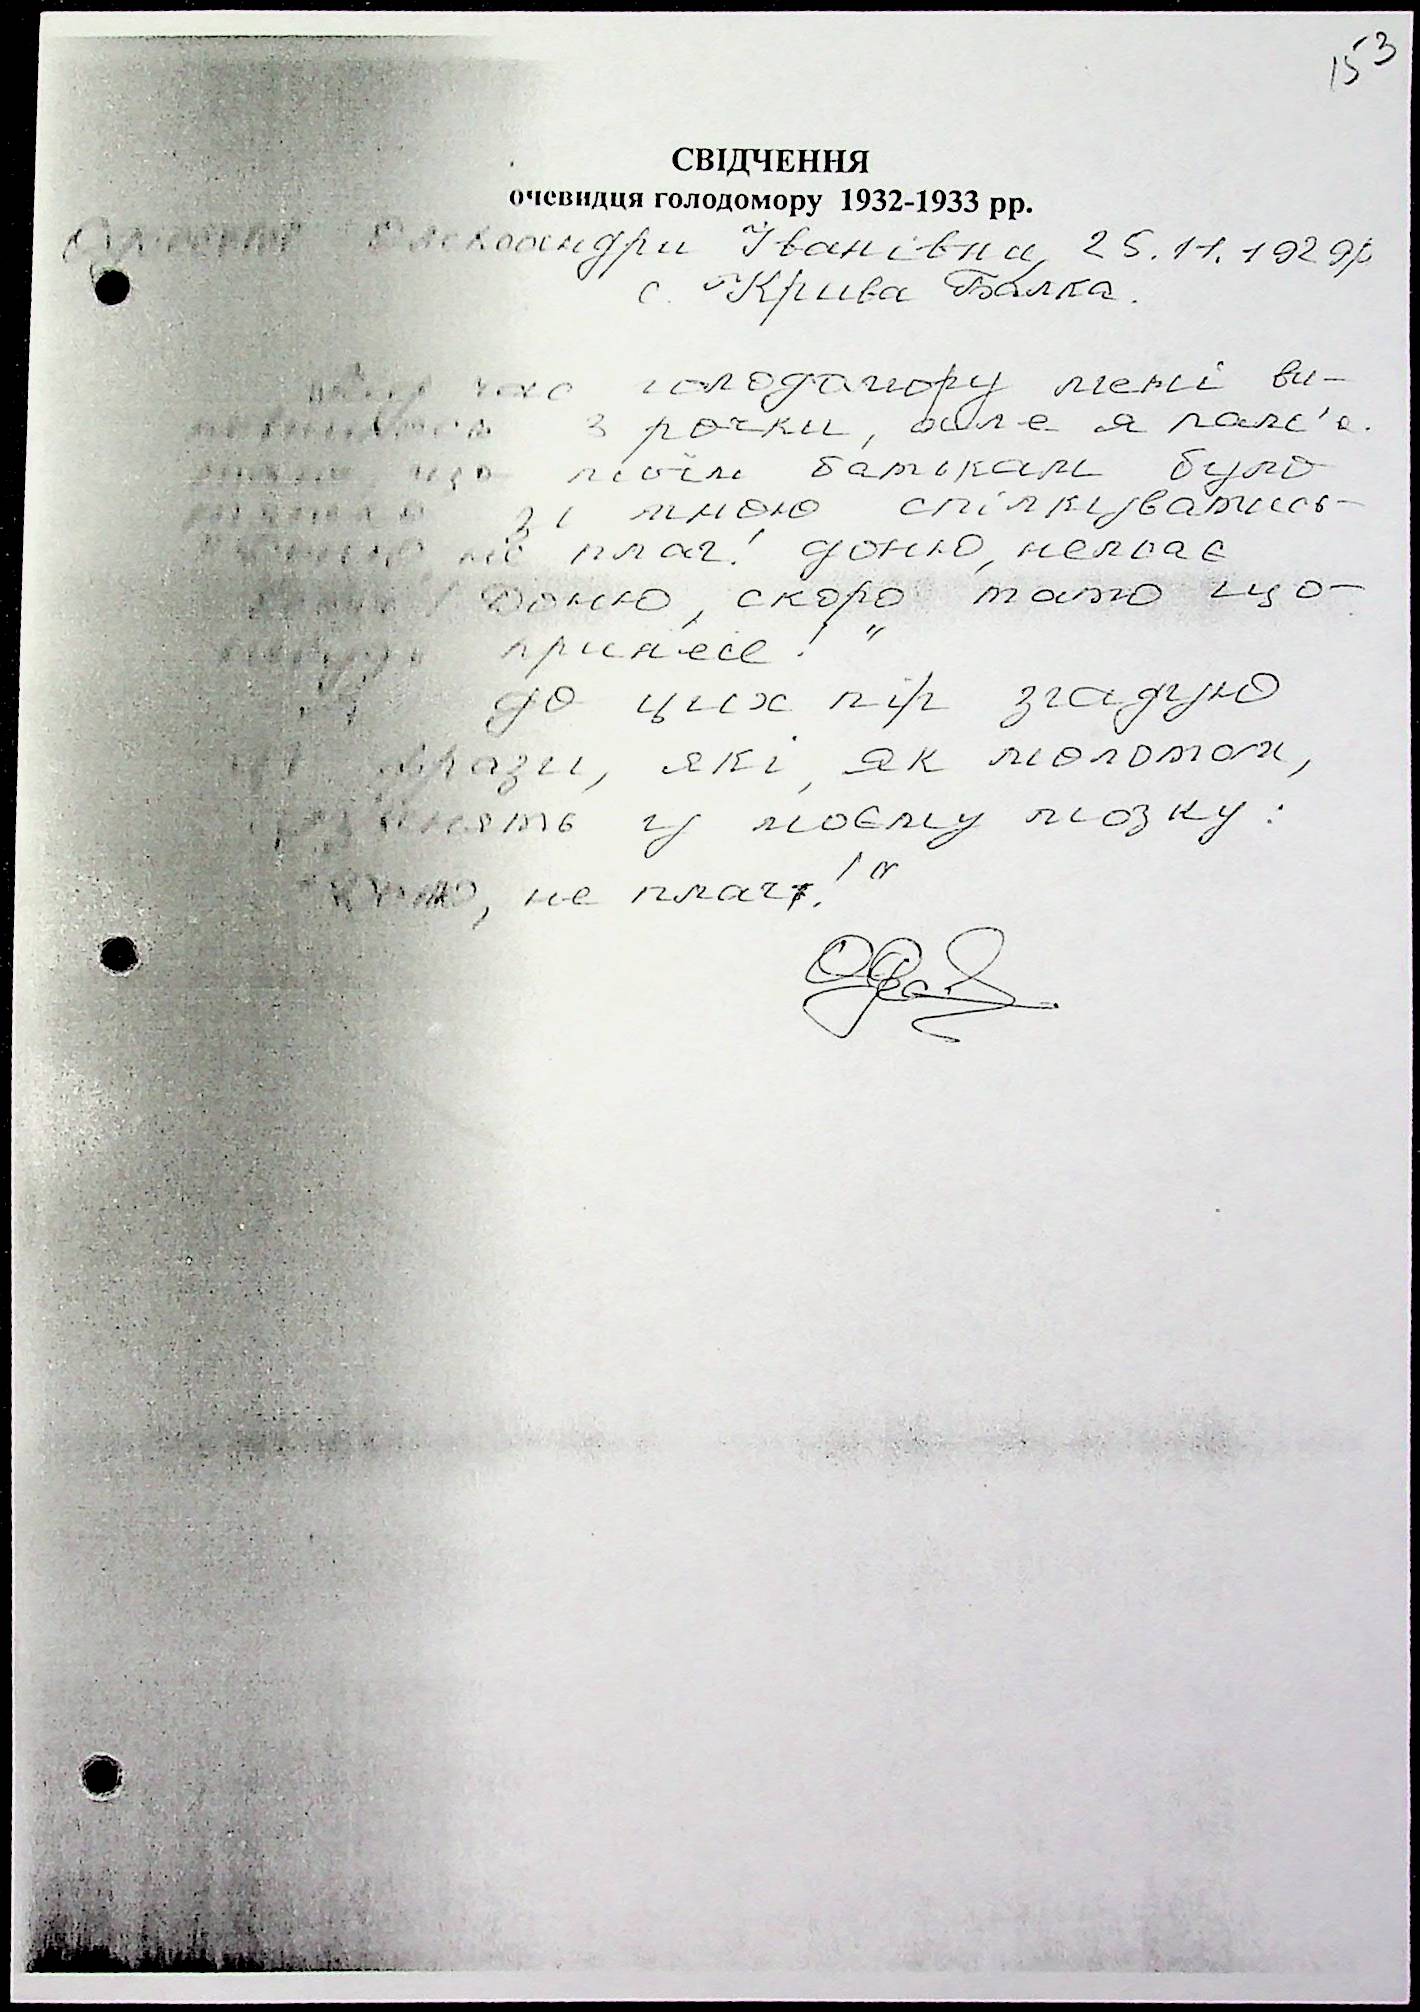 153
СВІДЧЕННЯ
очевидця голодомору 1932-1933 рр.
Олександри Іванівни, 25.11.1929р
с. Крива Балка.
Під час голодомору мені ви-
3 рочки, але я пам'я-
що моїм батькам було
зі мною спілкуватись
не плач! доню, немає
Доню, скоро тато що-
небудь принесе!"
до цих пір згадую
ці фрази, які, як молотом,
у моєму мозку:
"Доню, не плач!"